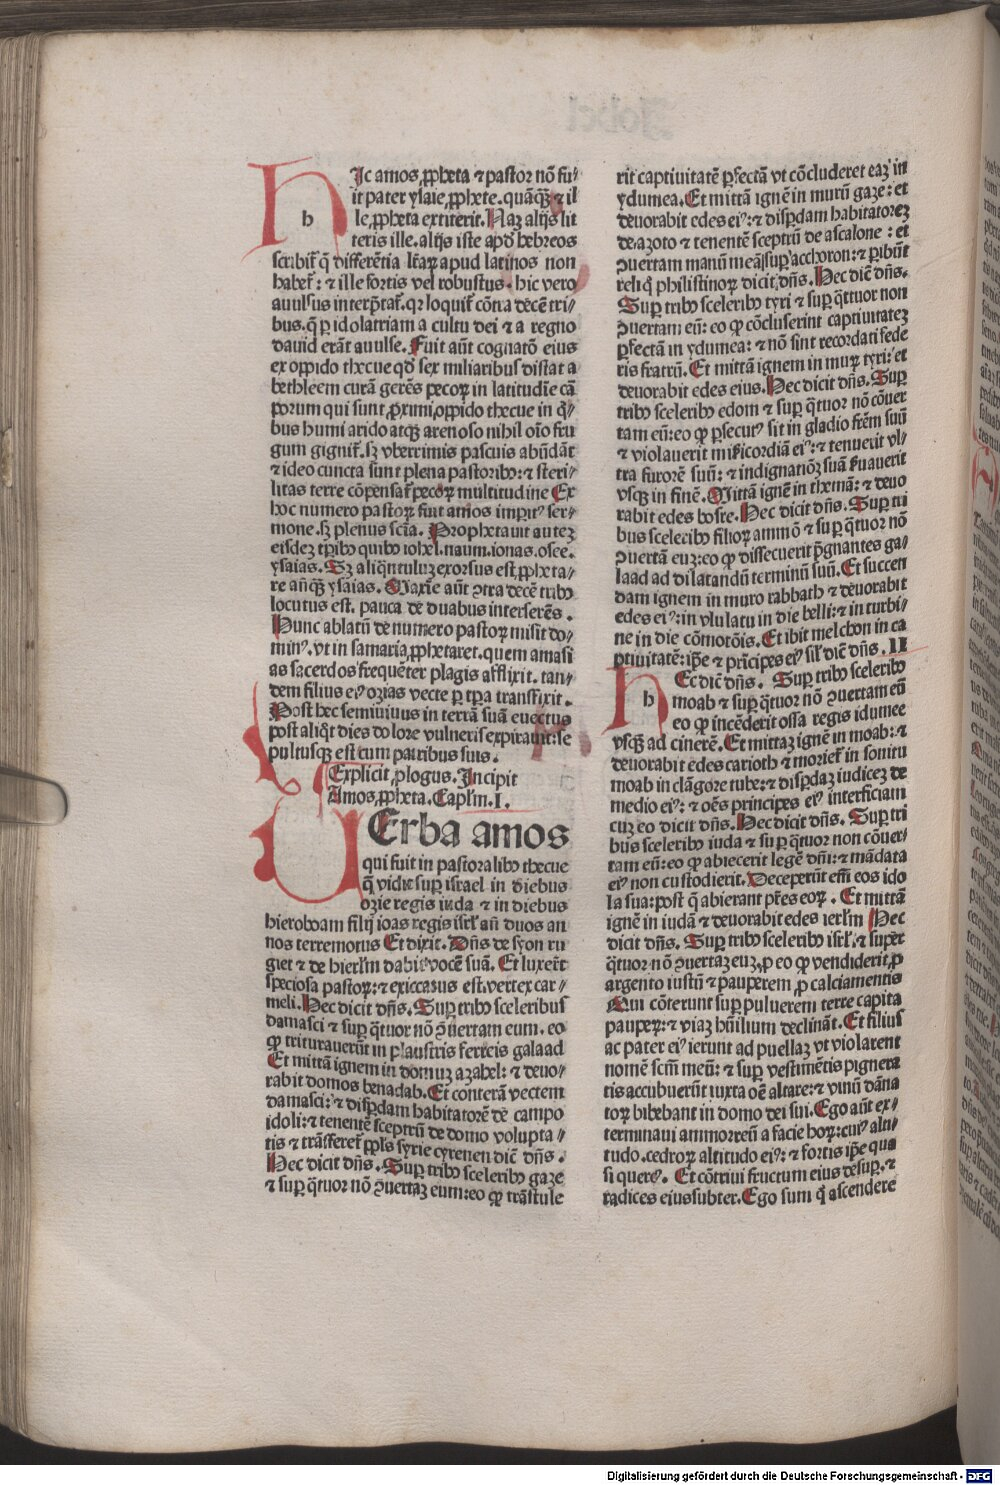 HIc amos ꝓpheta ⁊ pastor nō fu⸗
it pater ysaie ꝓphete. quāqȝ ⁊ il
le ꝓpheta extiterit. Naȝ alijs lit
teris ille. alijs iste apd̛ hebreos
scribit̃ q̄ differētia lr̃aꝝ apud latinos non
habet̃: ⁊ ille fortis vel robustus. hic vero
auulsus interp̃tat̃. qꝛ loquit̃ cōtra decē tri⸗
bus. q̄ ꝑ idolatriam a cultu dei ⁊ a regno
dauid erāt auulse. Fuit aūt cognatō eius
ex oppido thecue qd̛ sex miliaribus distat a
bethleem curā gerēs pecoꝝ in latitudīe cā
porum qui sunt ꝓximi oppido thecue in q̄⸗
bus humi arido atqȝ arenoso nihil oīo fru
gum gignit̃. sȝ vberrimis pascuis abūdāt
⁊ ideo cuncta sunt plena pastoribꝰ: ⁊ steri⸗
litas terre cōpensat̃ pecoꝝ multitudine Ex
hoc numero pastoꝝ fuit amos imꝑitꝰ ser⸗
mone. sȝ plenus scīa. Prophetauit auteȝ
eisdeȝ tꝑibꝰ quibꝰ iohel. naum. ionas. osee.
ysaias. Sȝ aliq̄ntuluȝ exorsus est ꝓpheta⸗
re añqȝ ysaias. Maxīe aūt ꝯtra decē tribꝰ
locutus est. pauca de duabus interserēs.
Hunc ablatū de numero pastoꝝ misit do⸗
minꝰ. vt in samaria ꝓphetaret. quem amasi
as sacerdos frequēter plagis afflixit. tan⸗
dem filius eiꝰ ozias vecte ꝑ tp̄a transfixit.
Post hec semiuiuus in terrā suā euectus
post aliq̄t dies dolore vulneris expirauit: se
pultusqȝ est cum patribus suis.
Explicit ꝓlogus. Incipit
Amos ꝓpheta. Capl̃m. I.
VErba amos
qui fuit in pastoralibꝰ thecue
q̄ vidit suꝑ israel in diebus
ozie regis iuda ⁊ in diebus
hieroboam filij ioas regis isrl̃ añ duos an
nos terremotus Et dixit. Dñs de syon ru
giet ⁊ de hierl̃m dabit vocē suā. Et luxert̃
speciosa pastoꝝ: ⁊ exiccatus est vertex car⸗
meli. Hec dicit dñs. Suꝑ tribꝰ sceleribus
damasci ⁊ suꝑ q̄tuor nō ꝯuertam eum. eo
ꝙ triturauerūt in plaustris ferreis galaad
Et mittā ignem in domuȝ azahel: ⁊ deuo⸗
rabit domos benadab. Et conterā vectem
damasci: ⁊ disꝑdam habitatorē de campo
idoli: ⁊ tenentē sceptrū de domo volupta⸗
tis ⁊ trāsferet̃ ppl̃s syrie cyrenen dic̄ dñs.
Hec dicit dñs. Suꝑ tribꝰ sceleribꝰ gaze
⁊ suꝑ q̄tuor nō ꝯuertaȝ eum: eo ꝙ trāstule
rit captiuitatē ꝑfectā vt cōcluderet eaȝ in
ydumea. Et mittā ignē in murū gaze: et
deuorabit edes eiꝰ: ⁊ disꝑdam habitatoreȝ
de azoto ⁊ tenentē sceptrū de ascalone: et
ꝯuertam manū meā suꝑ acchoron: ⁊ ꝑibūt
reliq̄ philistinoꝝ dicit dñs. Hec dic̄ dñs.
Suꝑ tribꝰ sceleribꝰ tyri ⁊ suꝑ q̄tuor non
ꝯuertam eū: eo ꝙ cōcluserint captiuitateȝ
ꝑfectā in ydumea: ⁊ nō sint recordati fede
ris fratrū. Et mittā ignem in muꝝ tyri: et
deuorabit edes eius. Hec dicit dñs. Suꝑ
tribꝰ sceleribꝰ edom ⁊ suꝑ q̄tuor nō cōuer
tam eū: eo ꝙ ꝑsecutꝰ sit in gladio frēm suū
⁊ violauerit mīcordiā eiꝰ: ⁊ tenuerit vl⸗
tra furorē suū: ⁊ indignationē suā fuauerit
vsqȝ in finē. Mittā ignē in themā: ⁊ deuo
rabit edes bosre. Hec dicit dñs. Suꝑ tri
bus sceleribꝰ filioꝝ ammō ⁊ suꝑ q̄tuor nō
ꝯuertā euȝ: eo ꝙ dissecuerit p̄gnantes ga⸗
laad ad dilatandū terminū suū. Et succen
dam ignem in muro rabbath ⁊ deuorabit
edes eiꝰ: in vlulatu in die belli: ⁊ in turbi⸗
ne in die cōmotōis. Et ibit melchon in ca
ptiuitatē: ip̄e ⁊ prīcipes eiꝰ sil̃ dic̄ dñs. II
HEc dic̄ dñs. Suꝑ tribꝰ sceleribꝰ
moab ⁊ suꝑ q̄tuor nō ꝯuertam eū
eo ꝙ incēderit ossa regis idumee
vsqȝ ad cinerē. Et mittaȝ ignē in moab: ⁊
deuorabit edes carioth ⁊ moriet̃ in sonitu
moab in clāgore tube: ⁊ disꝑdaȝ iudiceȝ de
medio eiꝰ: ⁊ oēs principes eiꝰ interficiam
cuȝ eo dicit dñs. Hec dicit dñs. Suꝑ tri
bus sceleribꝰ iuda ⁊ suꝑ q̄tuor non cōuer⸗
tam eū: eo ꝙ abiecerit legē dñi: ⁊ mādata
eiꝰ non custodierit. Deceperūt em̄ eos ido
la sua: post q̄ abierant p̄res eoꝝ. Et mittā
ignē in iudā ⁊ deuorabit edes ierl̃m Hec
dicit dñs. Suꝑ tribꝰ sceleribꝰ isrl̃: ⁊ super
q̄tuor nō ꝯuertaȝ euȝ, ꝓ eo ꝙ vendiderit ꝓ
argento iustū ⁊ pauperem ꝓ calciamentis
Qui cōterunt suꝑ puluerem terre capita
paupeꝝ: ⁊ viaȝ hūilium declināt. Et filius
ac pater eiꝰ ierunt ad puellaȝ vt violarent
nomē scm̄ meū: ⁊ suꝑ vestimētis pignera
tis accubuerūt iuxta oē altare: ⁊ vinū dāna
toꝝ bibebant in domo dei sui. Ego aūt ex⸗
terminaui ammorreū a facie hoꝝ: cuiꝰ alti⸗
tudo. cedroꝝ altitudo eiꝰ: ⁊ fortis ip̄e qua
si quercꝰ. Et cōtriui fructum eius desuꝑ. ⁊
radices eius subter. Ego sum q̄ ascendere
Digitalisierung gefördert durch die Deutsche Forschungsgemeinschaft - DFG